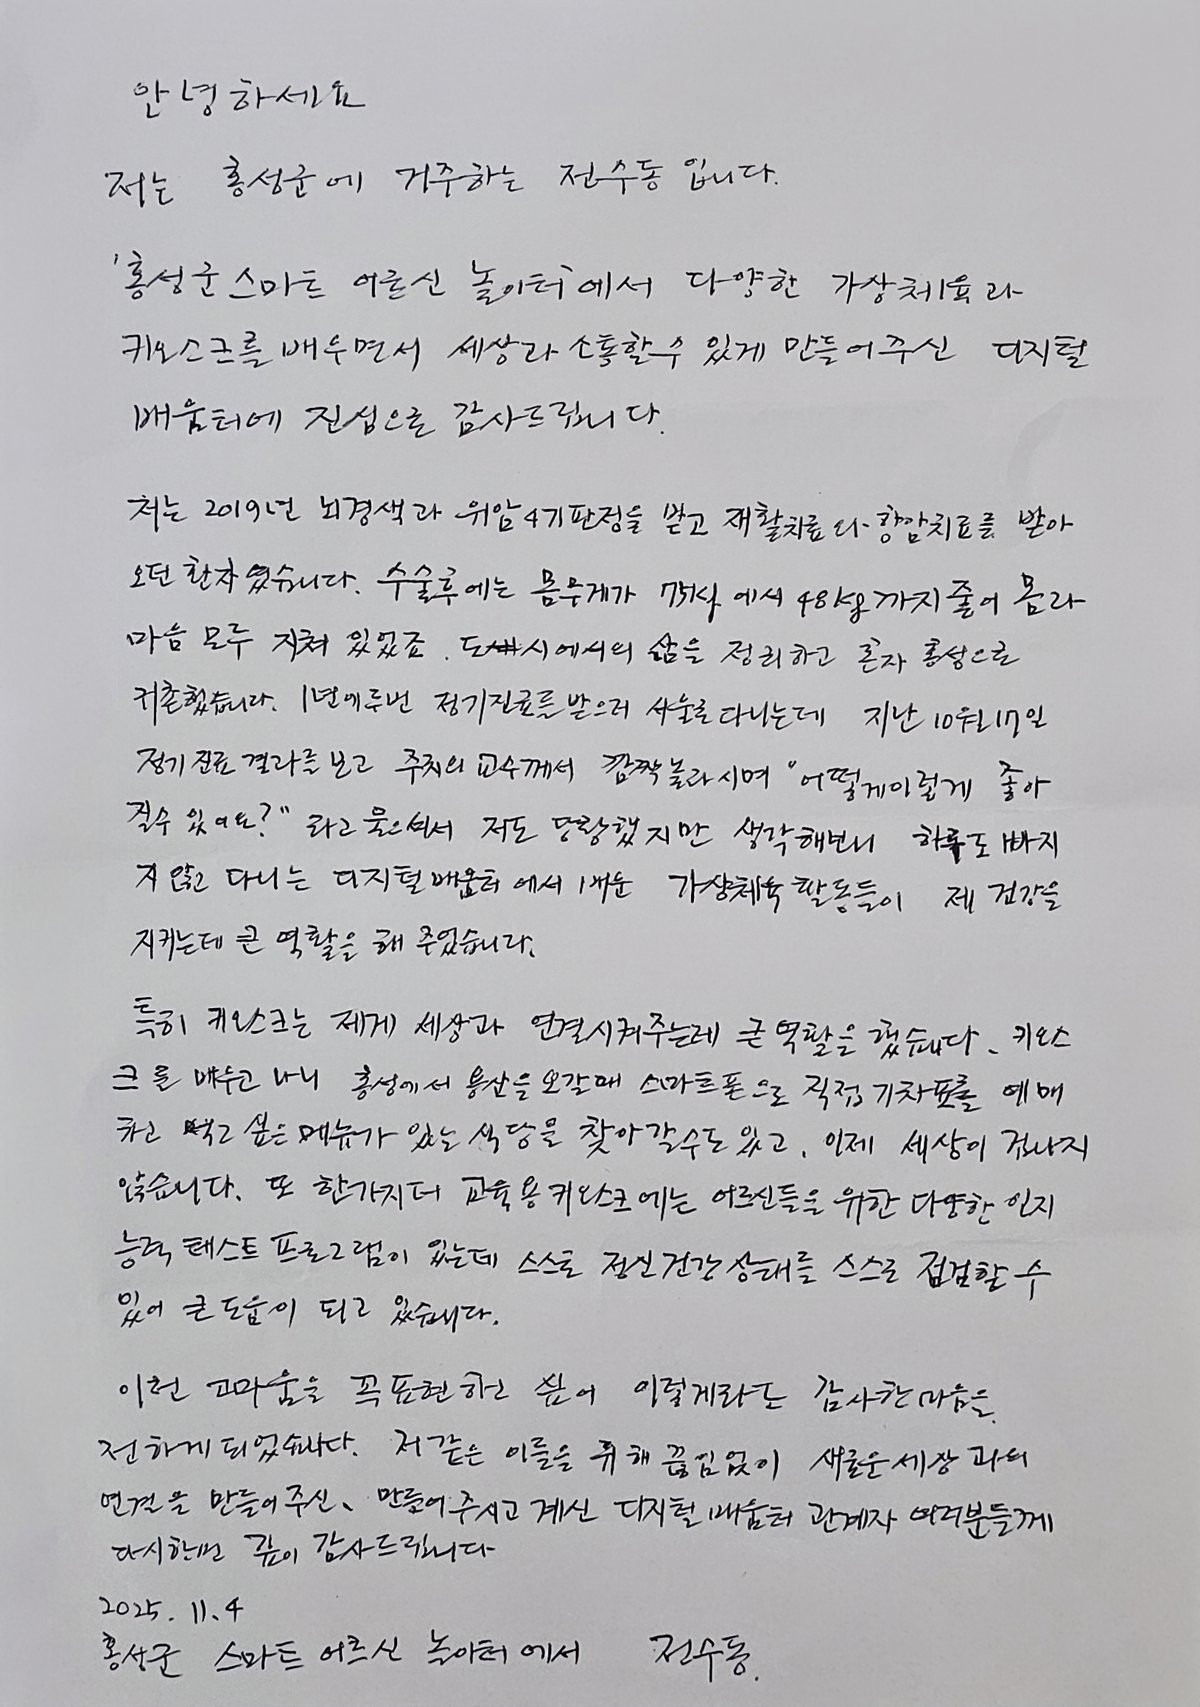 안녕하세요
저는 홍성군에 거주하는 전수동입니다.
'홍성군 스마트 어르신 놀이터'에서 다양한 가상체육과
키오스크를 배우면서 세상과 소통할 수 있게 만들어주신 디지털
배움터에 진심으로 감사드립니다.
저는 2019년 뇌경색과 위암4기판정을 받고 재활치료와 항암치료를 받아
오던 환자였습니다. 수술후에는 몸무게가 75kg에서 48kg까지 줄어 몸과
마음 모두 지쳐 있었죠. 도시에서의 삶을 정리하고 혼자 홍성으로
귀촌했습니다. 1년에 두번 정기진료를 받으러 서울로 다니는데 지난 10월 17일
정기진료 결과를 보고 주치의 교수께서 깜짝 놀라시며 "어떻게 이렇게 좋아
질수 있어요?" 라고 물으셔서 저도 당황했지만 생각해보니 하루도 빠지
지 않고 다니는 디지털배움터에서 배운 가상체육 활동들이 제 건강을
지키는데 큰 역할을 해 주었습니다.
특히 키오스크는 제게 세상과 연결시켜주는데 큰 역할을 했습니다. 키오스
크를 배우고 나니 홍성에서 용산을 오갈때 스마트폰으로 직접 기차표를 예매
하고 먹고 싶은 메뉴가 있는 식당을 찾아갈수도 있고, 이제 세상이 겁나지
않습니다. 또 한가지더 교육용 키오스크에는 어르신들을 위한 다양한 인지
능력 테스트 프로그램이 있는데 스스로 정신건강상태를 스스로 점검할 수
있어 큰 도움이 되고 있습니다.
이런 고마움을 꼭 표현하고 싶어 이렇게라도 감사한 마음을
전하게 되었습니다. 저 같은 이들을 위해 끊임없이 새로운 세상과의
연결을 만들어주신, 만들어 주시고 계신 디지털배움터 관계자 여러분들께
다시한번 깊이 감사드립니다
2025. 11. 4
홍성군 스마트 어르신 놀이터에서 전수동.